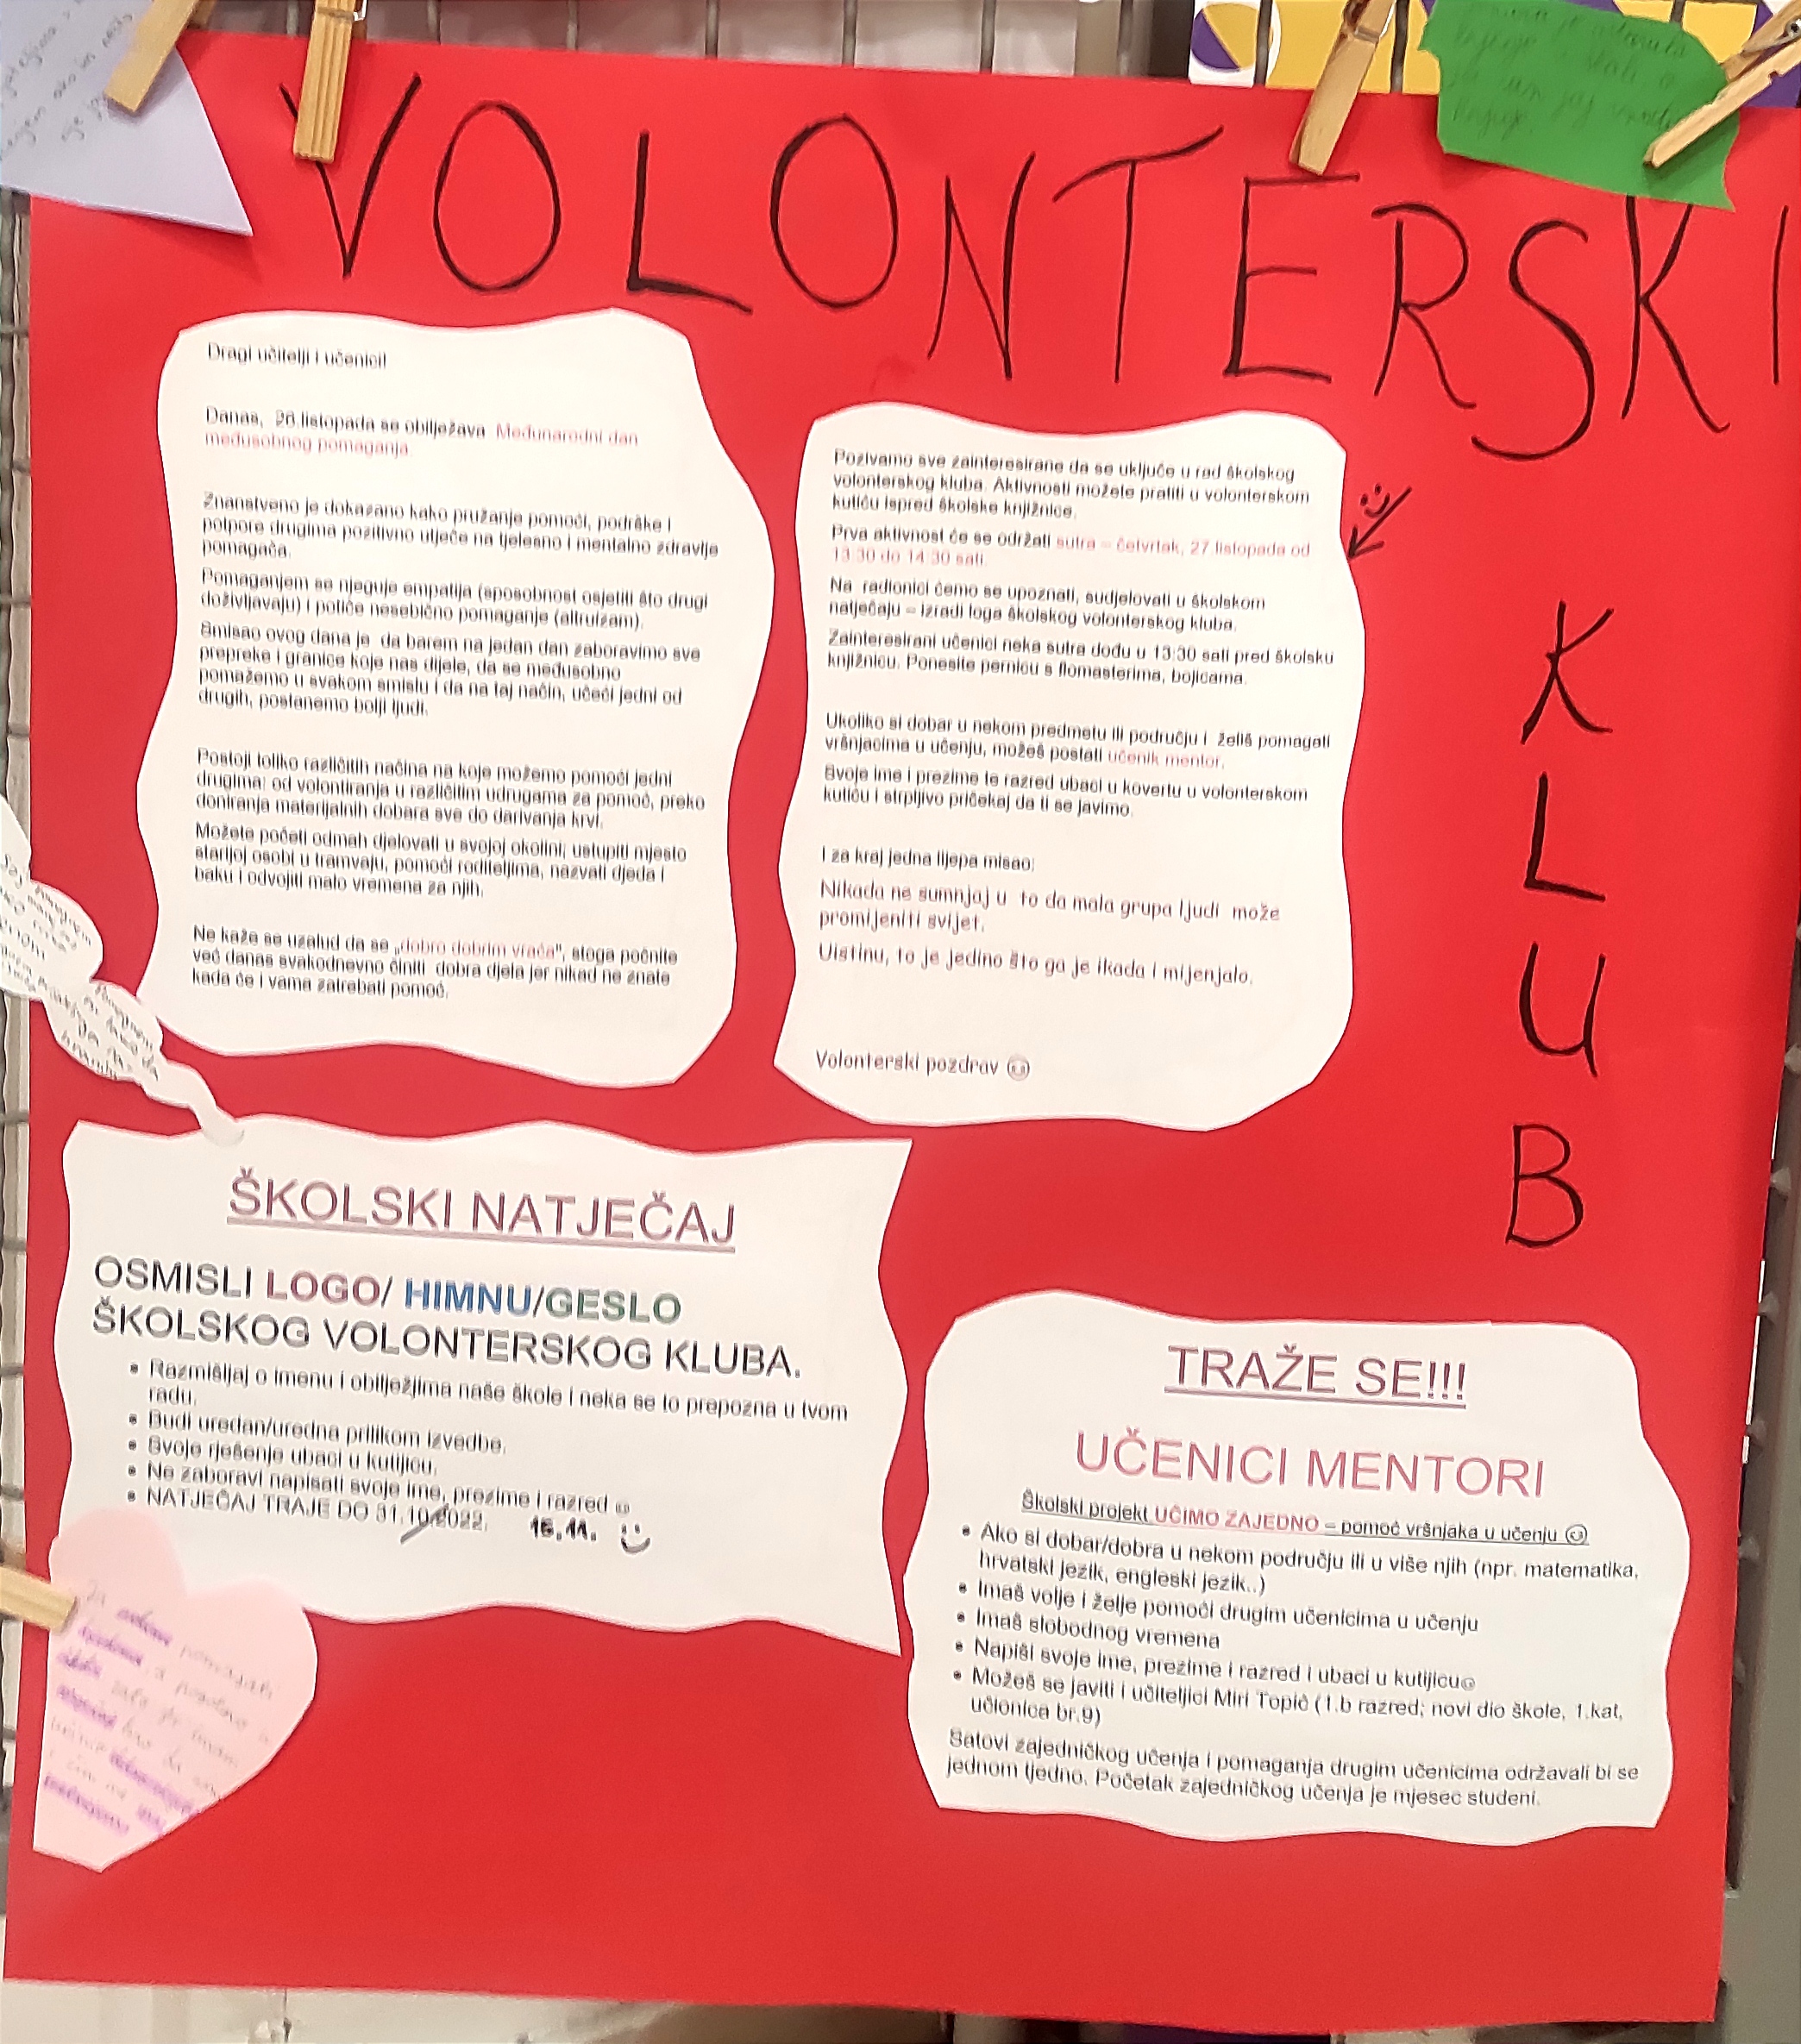 VOLONTERSKI
KLUB
Dragi učitelji i učenici!
Danas, 26.listopada se obilježava Međunarodni dan
međusobnog pomaganja
Znanstveno je dokazano kako pružanje pomoći, podrške i
potpore drugima pozitivno utječe na tjelesno i mentalno zdravlje
pomagača.
Pomaganjem se njeguje empatija (sposobnost osjetiti što drugi
doživljavaju) i potiče nesebično pomaganje (altruizam).
Smisao ovog dana je da barem na jedan dan zaboravimo sve
prepreke i granice koje nas dijele, da se međusobno
pomažemo u svakom smislu i da na taj način, učeći jedni od
drugih, postanemo bolji ljudi.
Postoji toliko različitih načina na koje možemo pomoći jedni
drugima: od volontiranja u različitim udrugama za pomoć, preko
doniranja materijalnih dobara sve do darivanja krvi.
Možete početi odmah djelovati u svojoj okolini; ustupiti mjesto
starijoj osobi u tramvaju, pomoći roditeljima, nazvati djeda i
baku i odvojiti malo vremena za njih.
Ne kaže se uzalud da se „dobro dobrim vraća", stoga počnite
već danas svakodnevno činiti dobra djela jer nikad ne znate
kada će i vama zatrebati pomoć.
Pozivamo sve zainteresirane da se uključe u rad školskog
volonterskog kluba. Aktivnosti možete pratiti u volonterskom
kutiću ispred školske knjižnice.
Prva aktivnost će se održati sutra – četvrtak, 27.listopada od
13:30 do 14:30 sati.
Na radionici ćemo se upoznati, sudjelovati u školskom
natječaju – izradi loga školskog volonterskog kluba.
Zainteresirani učenici neka sutra dođu u 13:30 sati pred školsku
knjižnicu. Ponesite pernicu s flomasterima, bojicama.
Ukoliko si dobar u nekom predmetu ili području i želiš pomagati
vršnjacima u učenju, možeš postati učenik mentor.
Svoje ime i prezime te razred ubaci u kovertu u volonterskom
kutiću i strpljivo pričekaj da ti se javimo.
I za kraj jedna lijepa misao:
Nikada ne sumnjaj u to da mala grupa ljudi može
promijeniti svijet.
Uistinu, to je jedino što ga je ikada i mijenjalo.
Volonterski pozdrav ☺
ŠKOLSKI NATJEČAJ
OSMISLI LOGO/ HIMNU/GESLO
ŠKOLSKOG VOLONTERSKOG KLUBA.
• Razmišljaj o imenu i obilježjima naše škole i neka se to prepozna u tvom
radu.
• Budi uredan/uredna prilikom izvedbe.
• Svoje rješenje ubaci u kutijicu.
• Ne zaboravi napisati svoje ime, prezime i razred ☺
• NATJEČAJ TRAJE DO 31.10.2022. 16.11.
TRAŽE SE!!!
UČENICI MENTORI
Školski projekt UČIMO ZAJEDNO – pomoć vršnjaka u učenju ☺
• Ako si dobar/dobra u nekom području ili u više njih (npr. matematika,
hrvatski jezik, engleski jezik..)
• Imaš volje i želje pomoći drugim učenicima u učenju
• Imaš slobodnog vremena
• Napiši svoje ime, prezime i razred i ubaci u kutijicu☺
• Možeš se javiti i učiteljici Miri Topić (1.b razred; novi dio škole, 1.kat,
učionica br.9)
Satovi zajedničkog učenja i pomaganja drugim učenicima održavali bi se
jednom tjedno. Početak zajedničkog učenja je mjesec studeni.